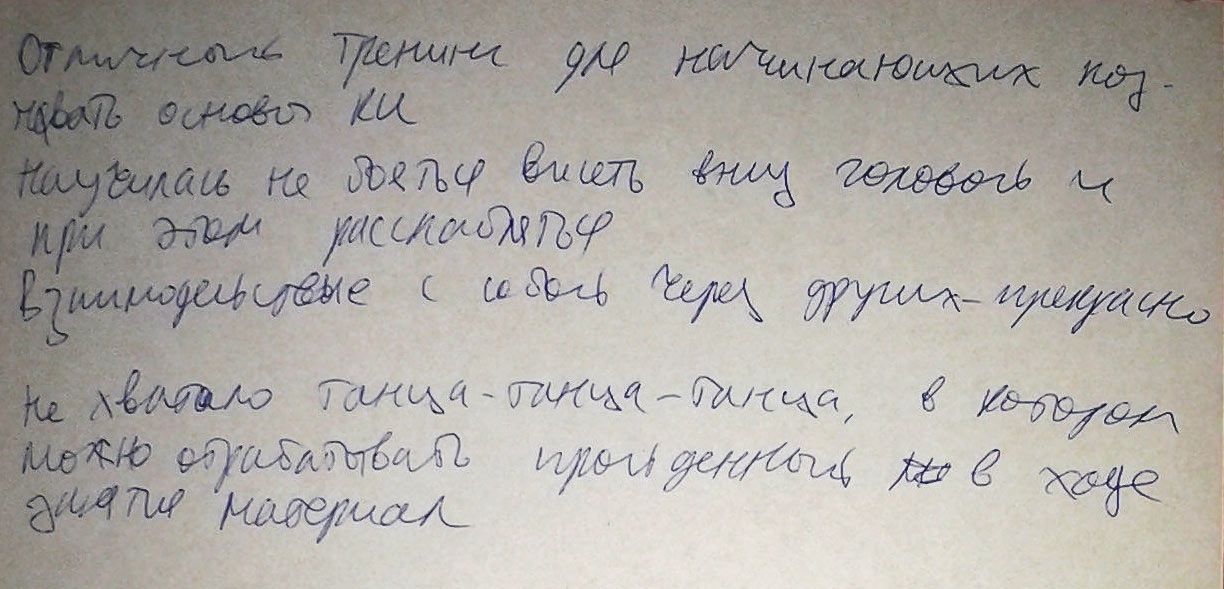 Отличный тренинг для начинающих поз-
навать основы КИ
Научилась не бояться висеть вниз головой и
при этом расслабляться
Взаимодействие с собой через других - прекрасно
Не хватало танца-танца-танца, в котором
можно отрабатывать пройденный в ходе
занятия материал